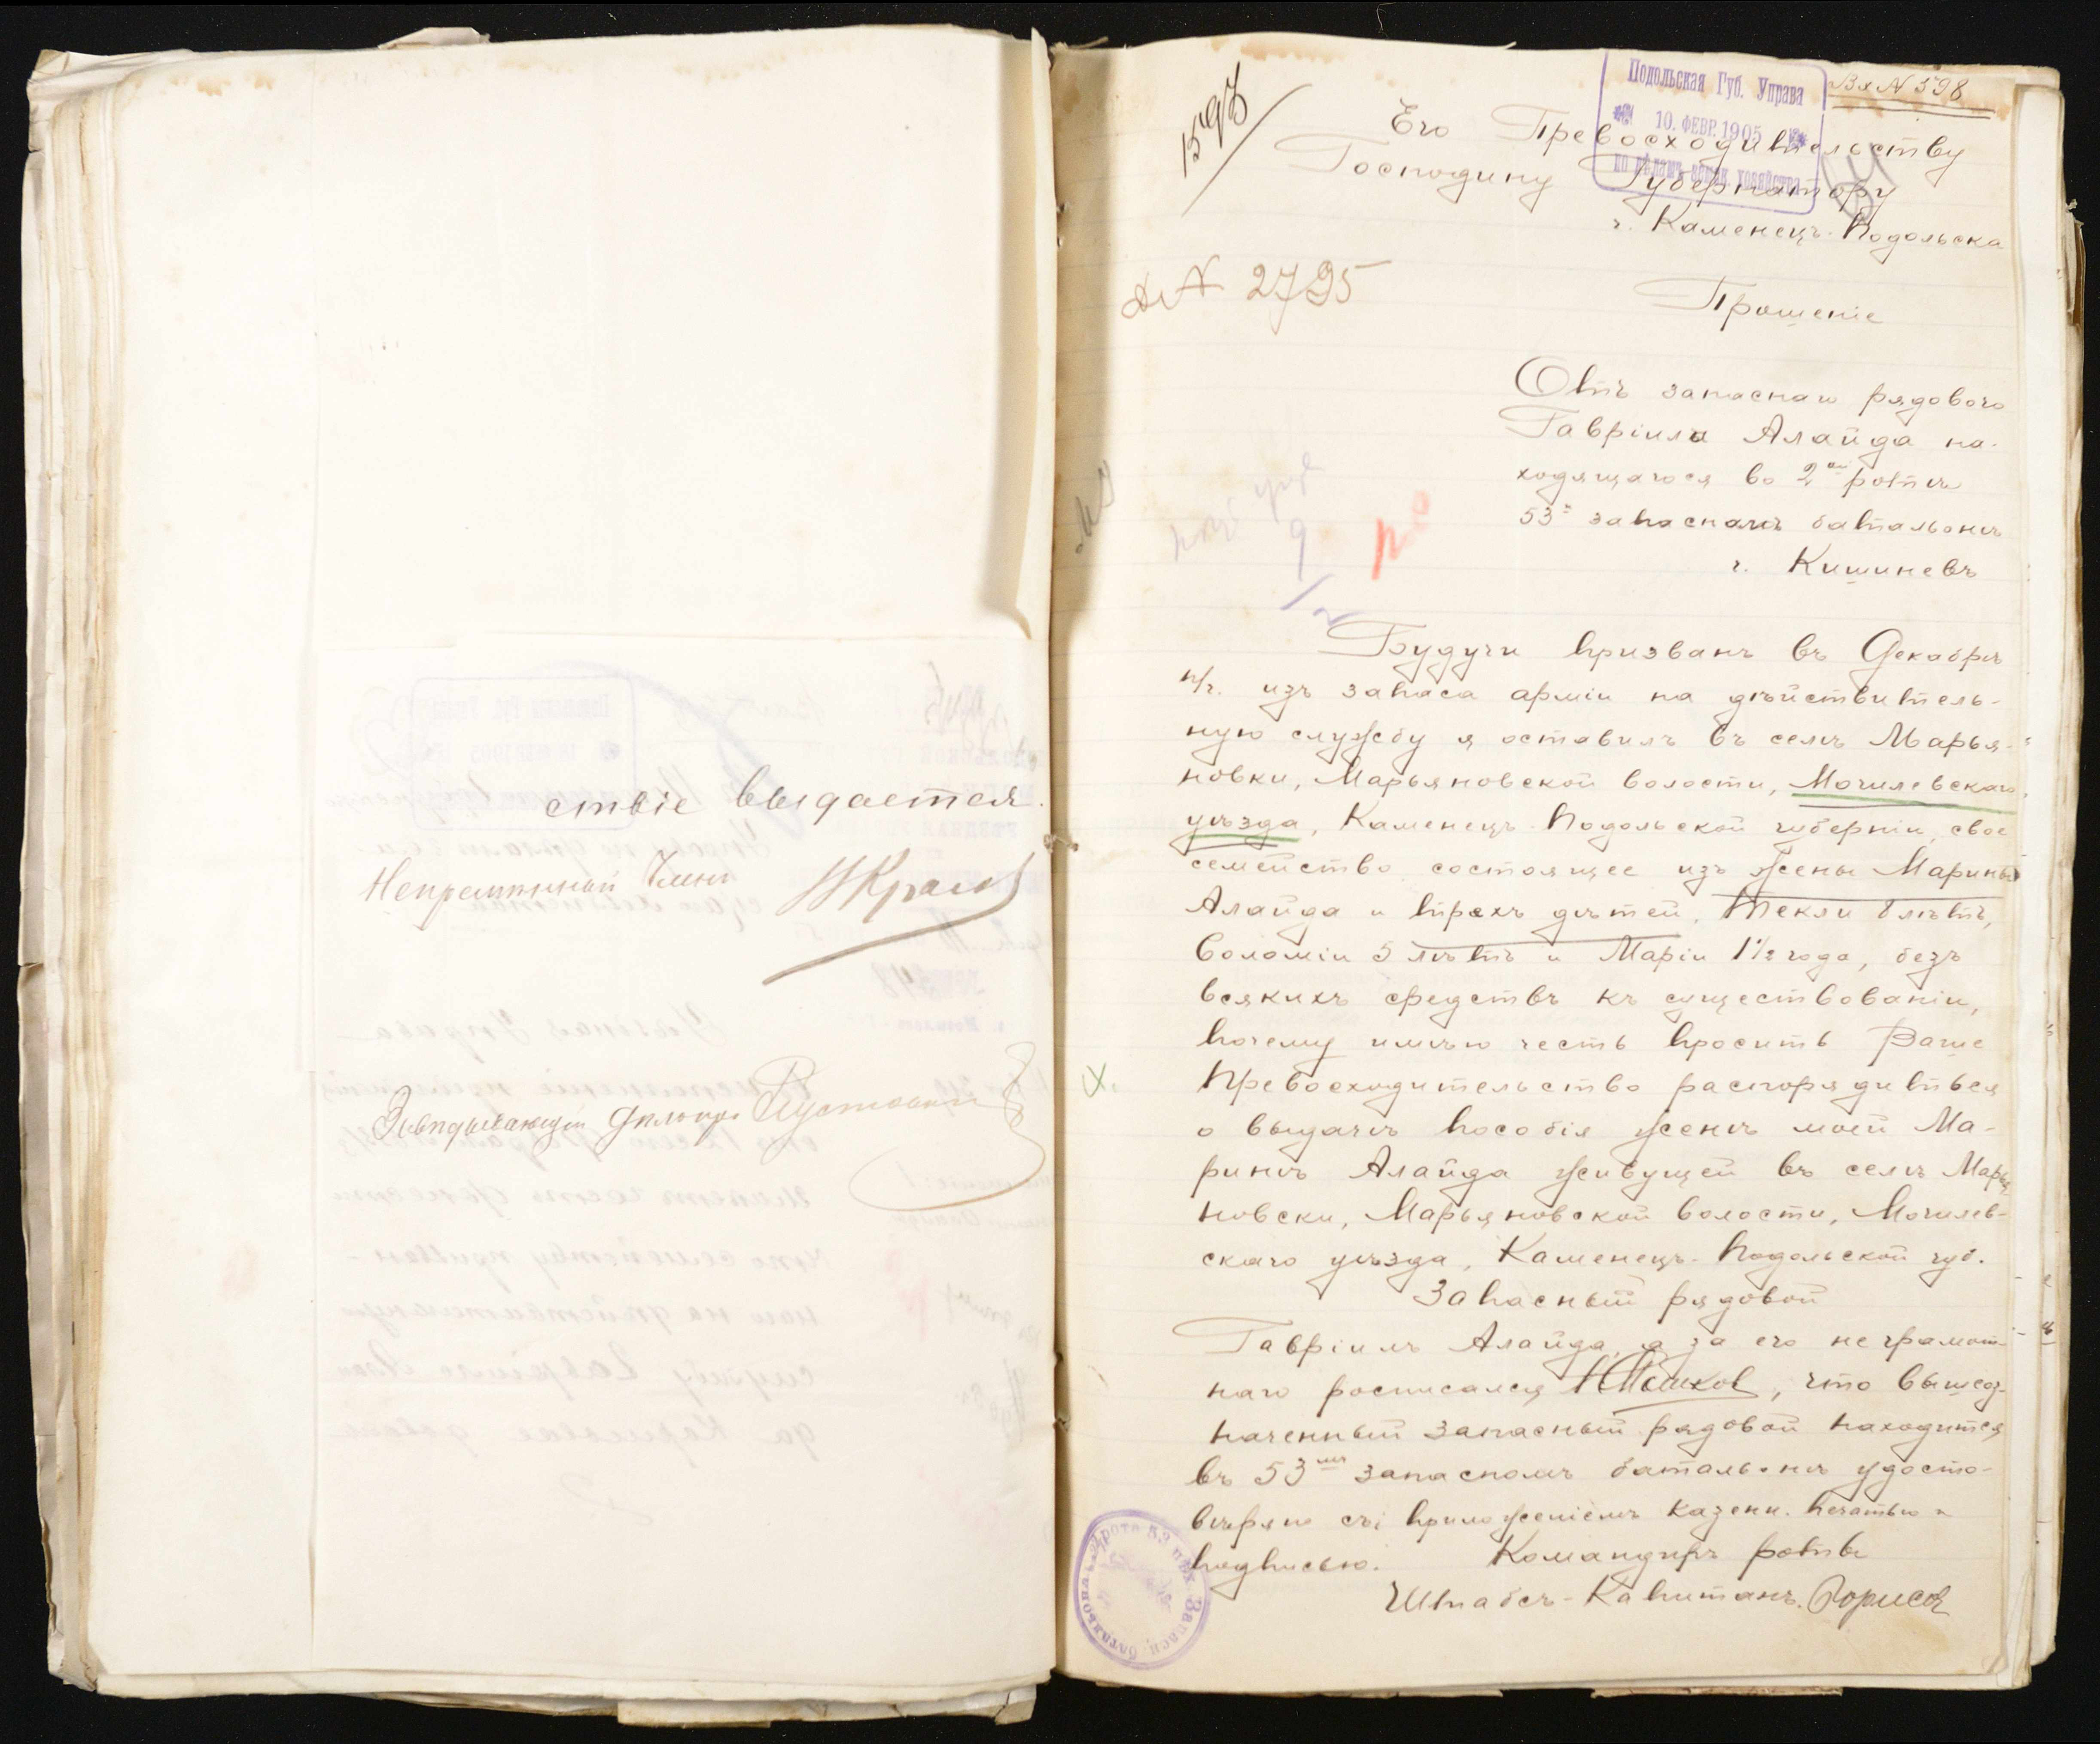 ствіе выдается.
Непремѣнный Членъ
Завѣдывающій
1597
Вх N 598
Подольская Губ. Управа
10. ФЕВР. 1905
по дѣламъ мѣстн. хозяйства
Его Превосходительству
Господину Губернатору
г. Каменецъ-Подольска
N 2795
Прошеніе
Отъ запаснаго рядового
Гавріила Алайда на-
ходящагося во 2ой ротѣ
53го запаснаго батальонѣ
г. Кишиневъ
Будучи призванъ въ Декабрѣ
п/г. изъ запаса арміи на дѣйствитель-
ную службу я оставилъ въ селѣ Марья-
новки, Марьяновской волости, Могилевскаго
уѣзда, Каменецъ-Подольской губерніи, свое
семейство состоящее изъ жены Марины
Алайда и трехъ дѣтей, Текли 8 лѣтъ,
Соломіи 5 лѣтъ и Маріи 1½ года, безъ
всякихъ средствъ къ существованію,
почему имѣю честь просить Ваше
Превосходительство распорядиться
о выдачѣ пособія женѣ моей Ма-
ринѣ Алайда живущей въ селѣ Марья
новски, Марьяновской волости, Могилев-
скаго уѣзда, Каменецъ-Подольской губ.
Запасный рядовой
Гавріилъ Алайда, а за его неграмот-
наго росписался, что вышеоз-
наченный запасный рядовой находится
въ 53мъ запасномъ батальонѣ удосто-
вѣряю съ приложеніемъ казенн. печатью и
подписью. Командиръ роты
Штабсъ-Капитанъ Борисов